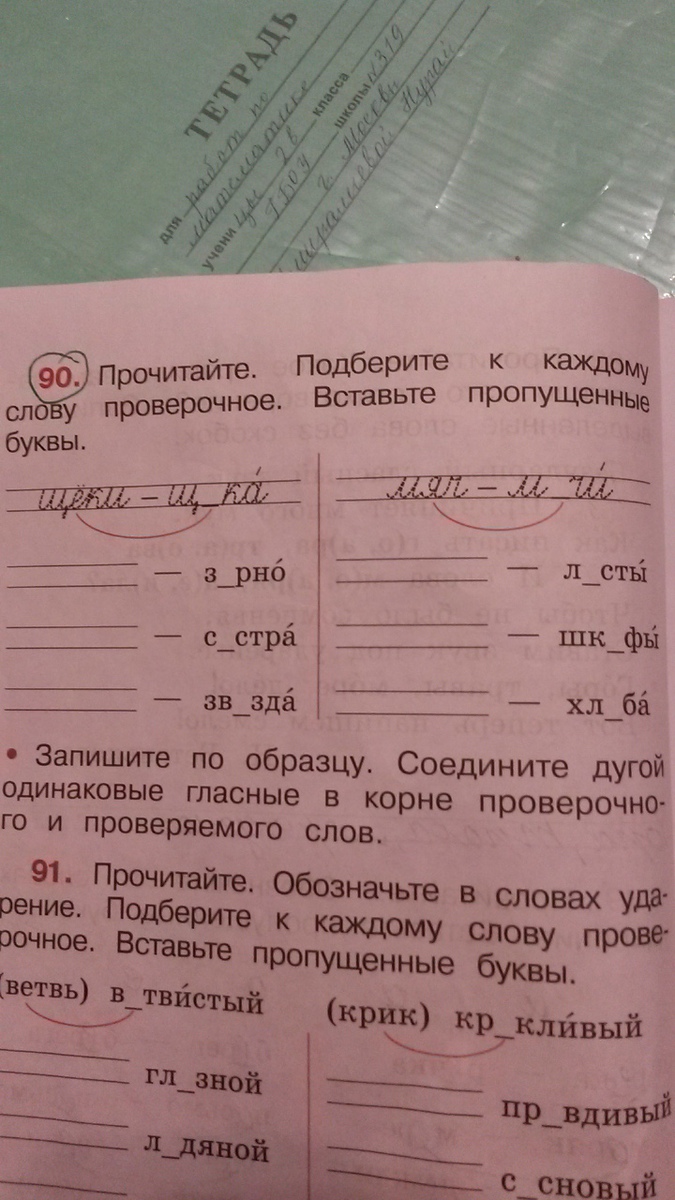 ТЕТРАДЬ
для работ по
математике
учени цы 2в класса
ГБОУ школы №319
г. Москвы
Нурай
90. Прочитайте. Подберите к каждому
слову проверочное. Вставьте пропущенные
буквы.
щёки – щ_ка́
мяч – м_чи́
— з_рно́
— л_сты́
— с_стра́
— шк_фы́
— зв_зда́
— хл_ба́
• Запишите по образцу. Соедините дугой
одинаковые гласные в корне проверочно-
го и проверяемого слов.
91. Прочитайте. Обозначьте в словах уда-
рение. Подберите к каждому слову прове-
рочное. Вставьте пропущенные буквы.
(ветвь) в_тви́стый
(крик) кр_кли́вый
гл_зной
пр_вдивый
л_дяной
с_сновый